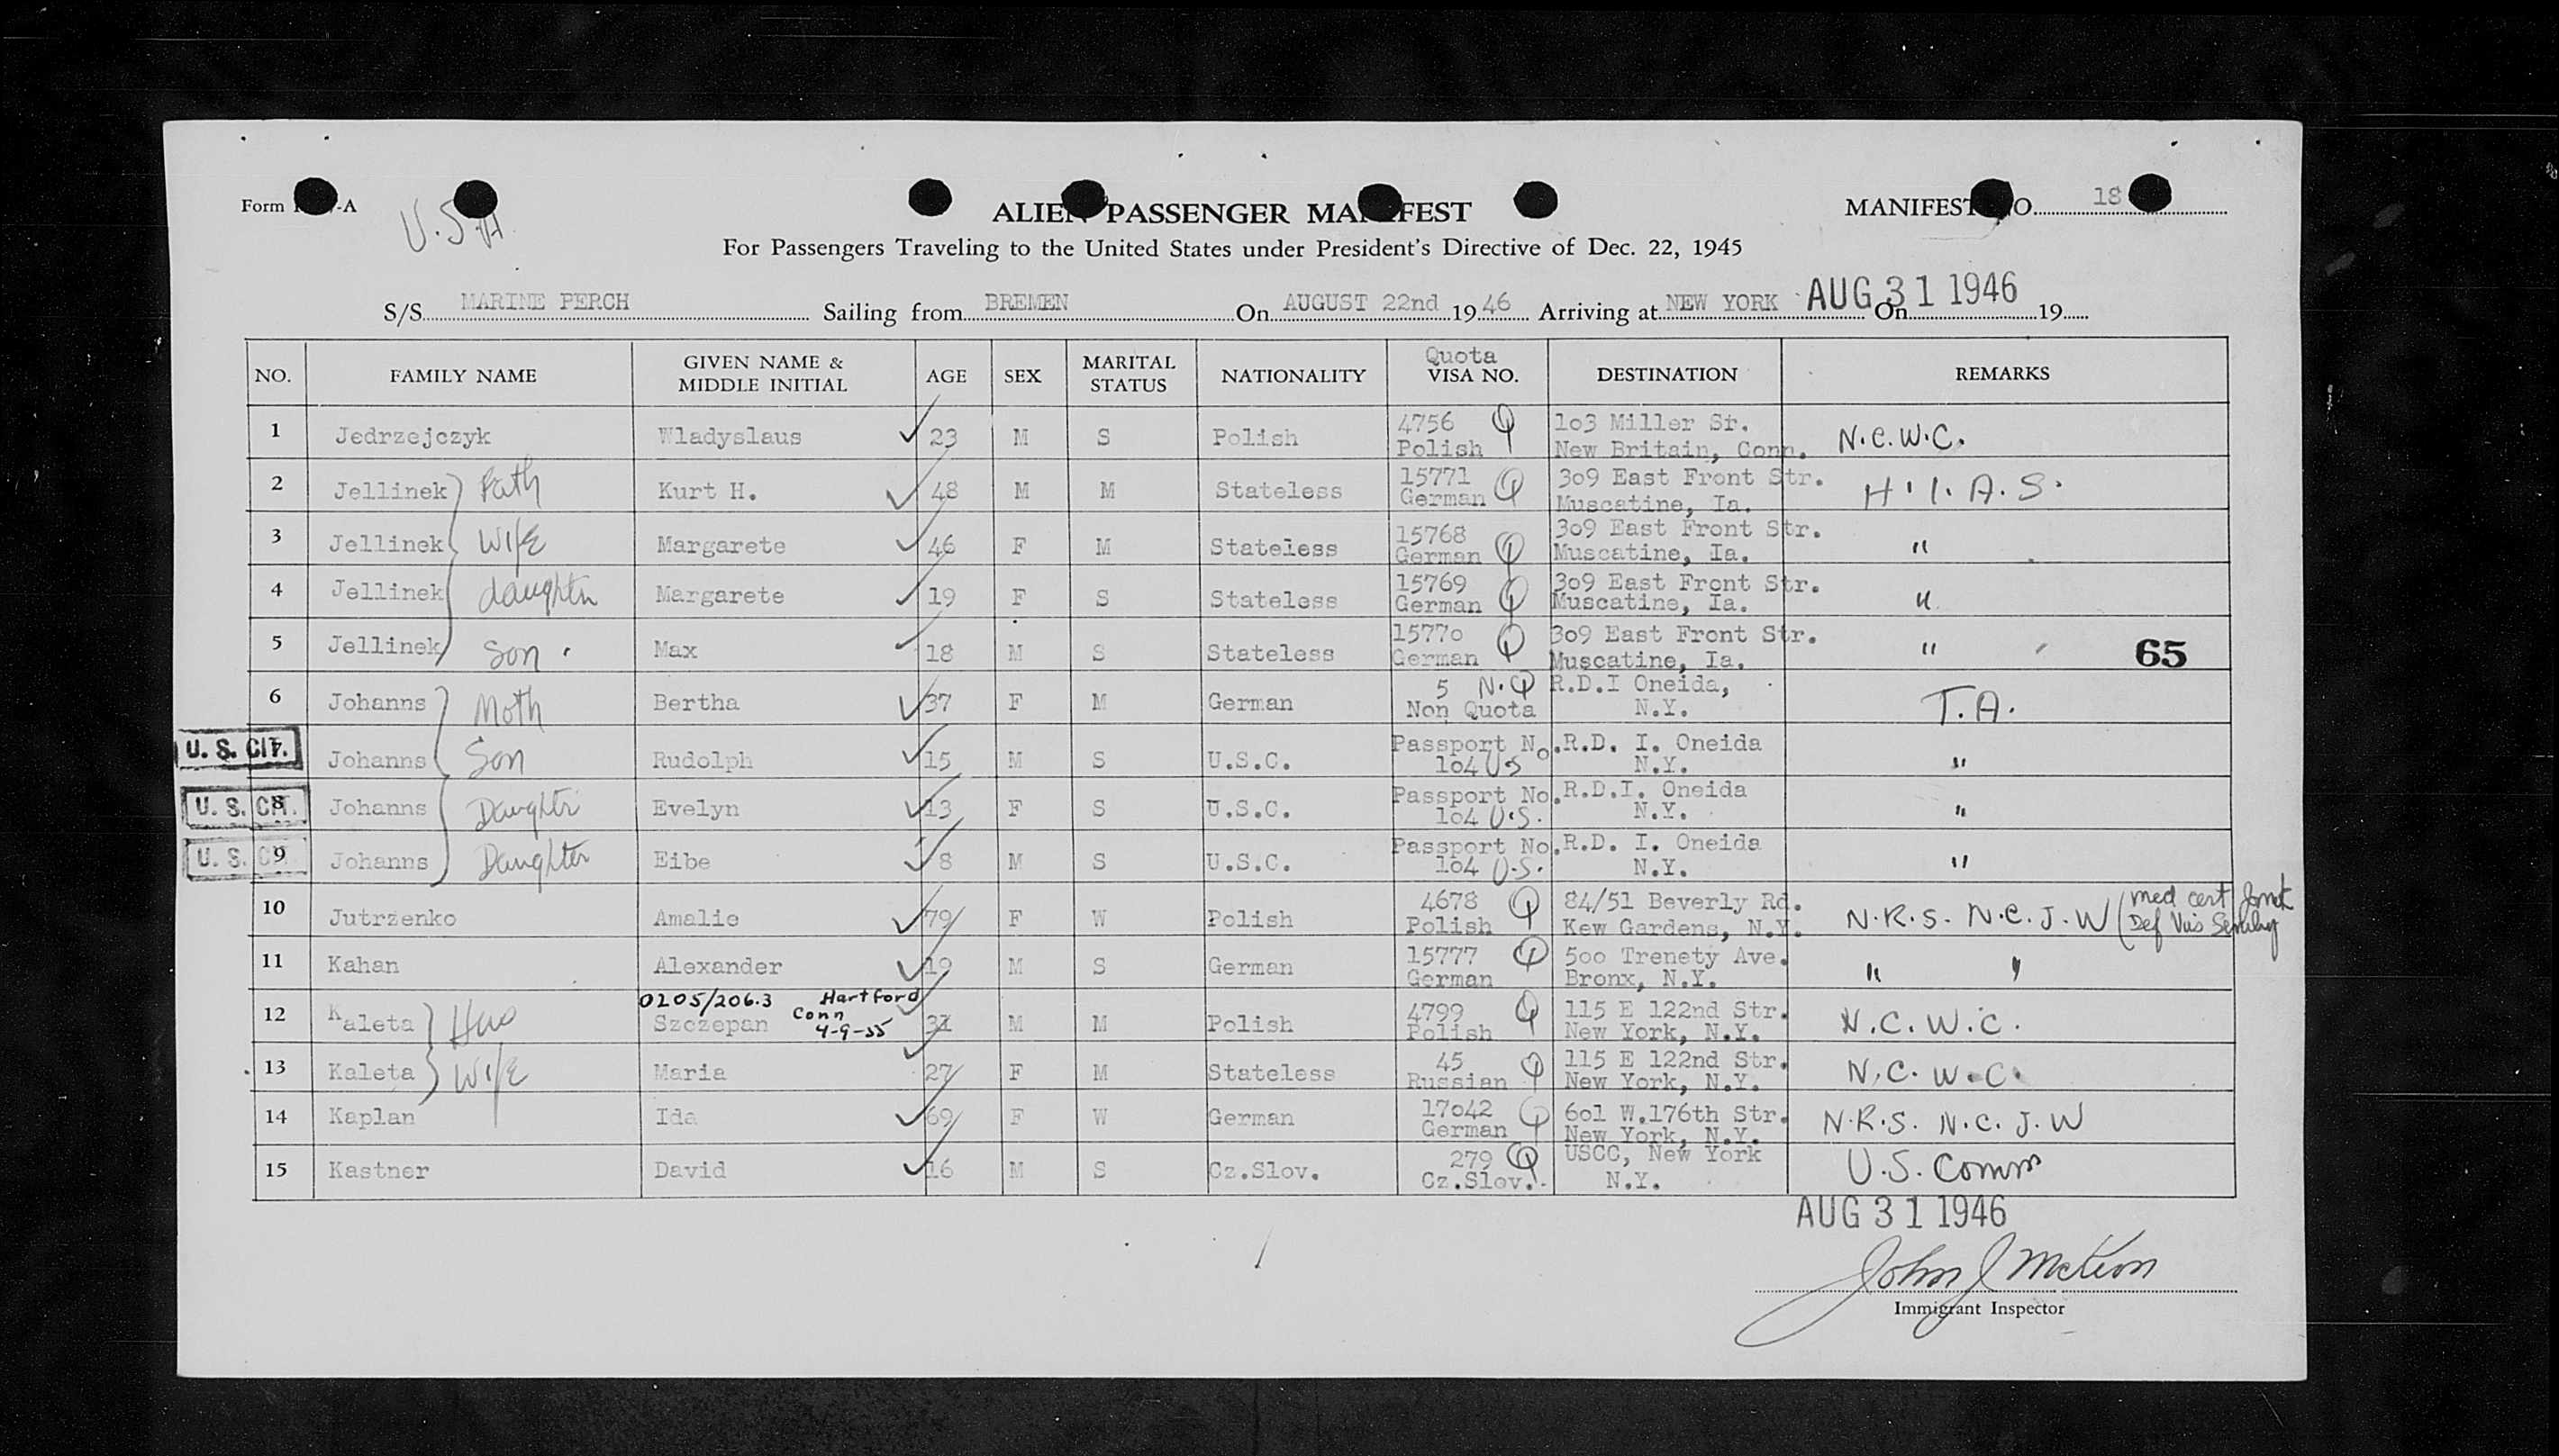 Form -A
U.S.A
ALIEN PASSENGER MANIFEST
MANIFEST NO. 18
For Passengers Traveling to the United States under President's Directive of Dec. 22, 1945
S/S MARINE PERCH Sailing from BREMEN On AUGUST 22nd 19 46 Arriving at NEW YORK On AUG 31 1946 19
NO. FAMILY NAME GIVEN NAME & MIDDLE INITIAL AGE SEX MARITAL STATUS NATIONALITY Quota VISA NO. DESTINATION REMARKS
1 Jedrzejczyk Wladyslaus 23 M S Polish 4756 Q Polish 103 Miller St. New Britain, Conn. N.C.W.C.
2 Jellinek Fath Kurt H. 48 M M Stateless 15771 German Q 309 East Front Str. Muscatine, Ia. H.I.A.S.
3 Jellinek Wife Margarete 46 F M Stateless 15768 German Q 309 East Front Str. Muscatine, Ia. "
4 Jellinek daughter Margarete 19 F S Stateless 15769 German Q 309 East Front Str. Muscatine, Ia. "
5 Jellinek Son Max 18 M S Stateless 15770 German Q 309 East Front Str. Muscatine, Ia. " 65
6 Johanns Moth Bertha 37 F M German 5 N.Q Non Quota R.D.I Oneida, N.Y. T.A.
U. S. CIT. 7 Johanns Son Rudolph 15 M S U.S.C. Passport No. 104 US R.D. I. Oneida N.Y. "
U. S. CIT. 8 Johanns Daughter Evelyn 13 F S U.S.C. Passport No. 104 U.S. R.D.I. Oneida N.Y. "
U. S. CIT. 9 Johanns Daughter Eibe 8 M S U.S.C. Passport No. 104 U.S. R.D. I. Oneida N.Y. "
10 Jutrzenko Amalie 79 F W Polish 4678 Q Polish 84/51 Beverly Rd. Kew Gardens, N.Y. N.R.S. N.C.J.W (med cert Def Vis
11 Kahan Alexander 19 M S German 15777 Q German 500 Trenety Ave. Bronx, N.Y. " "
0205/206.3 Hartford Conn 4-9-55
12 Kaleta Hus Szczepan M M Polish 4799 Q Polish 115 E 122nd Str. New York, N.Y. N.C.W.C.
13 Kaleta Wife Maria 27 F M Stateless 45 Q Russian 115 E 122nd Str. New York, N.Y. N.C.W.C.
14 Kaplan Ida 69 F W German 17042 Q German 601 W.176th Str. New York, N.Y. N.R.S. N.C.J.W
15 Kastner David 16 M S Cz.Slov. 279 Q Cz.Slov. USCC, New York N.Y. U.S. Comm
AUG 31 1946
John J McKeon
Immigrant Inspector